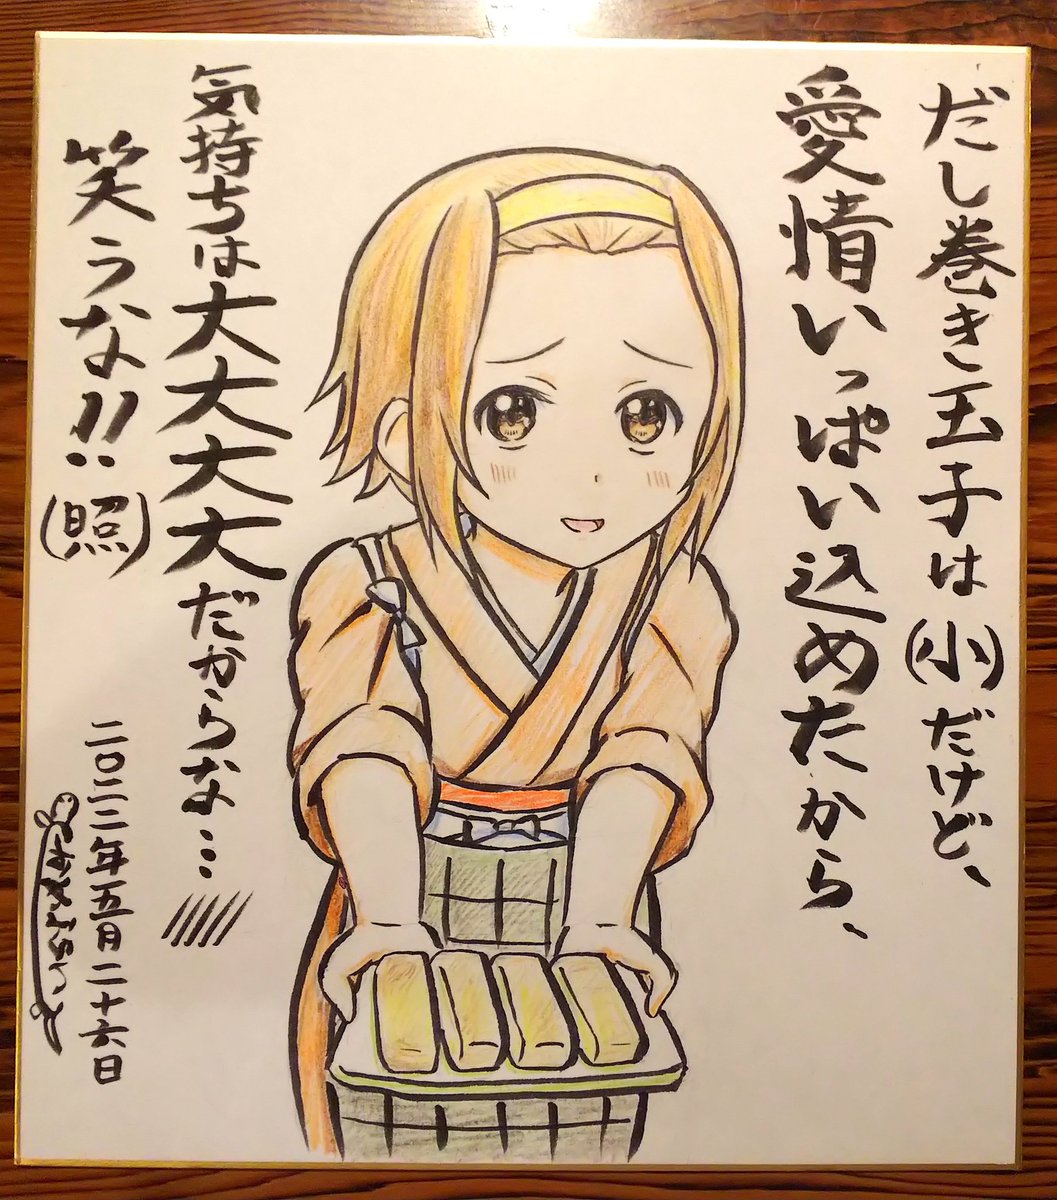 だし巻き玉子は(小)だけど、
愛情いっぱい込めたから、
気持ちは大大大大だからな…
笑うな!!(照)
二〇二二年五月二十六日